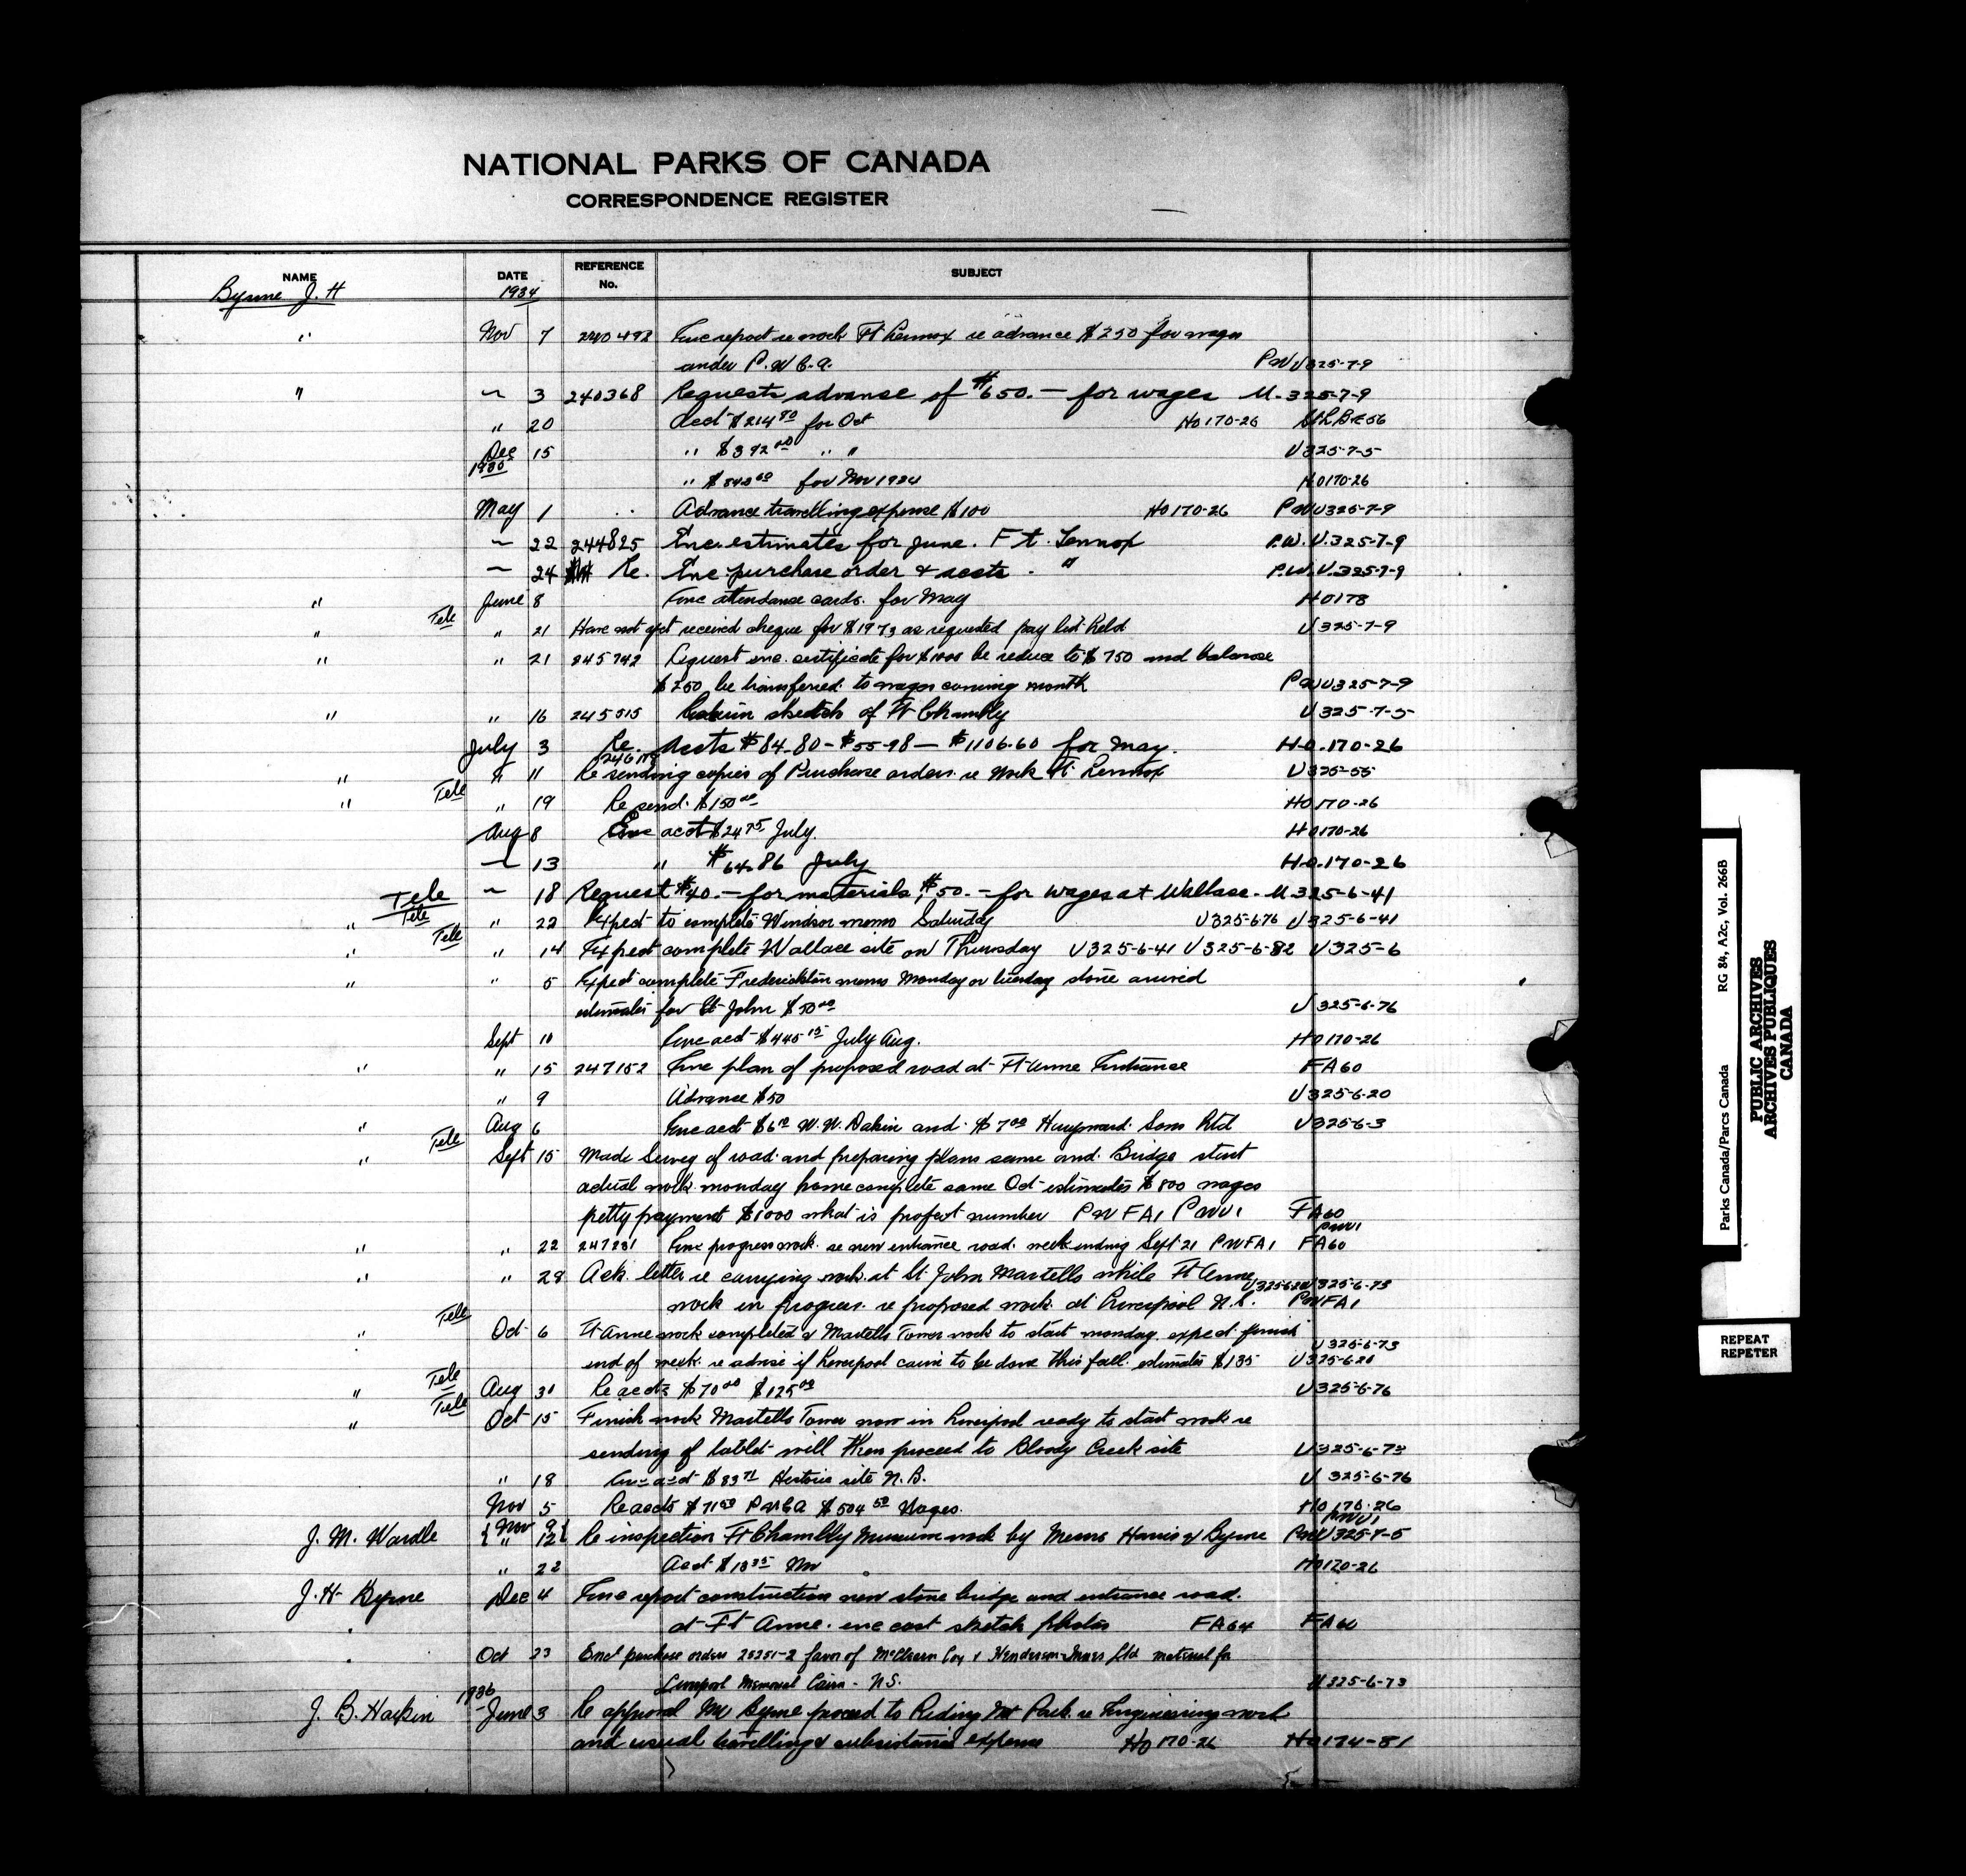 NATIONAL PARKS OF CANADA
CORRESPONDENCE REGISTER
NAME DATE REFERENCE No. SUBJECT
Byrne J. H 1934
" Nov 7 240498 Enc report re work Ft Lennox re advance $250 for wages
under P.W.C.A. PWU325-7-9
" ~ 3 240368 Requests advance of $650.— for wages U-325-7-9
" 20 Acct $214 80 for Oct Ho170-26
Dec 15 " $392 " " U325-7-5
1935 " for Nov 1934 Ho170-26
May 1 Advance travelling expense $100 Ho170-26 PWU325-7-9
~ 22 244825 Enc. estimates for June. Ft. Lennox P.W.U.325-7-9
~ 24 Re. Enc purchase order & accts. " P.W.U.325-7-9
" June 8 Enc attendance cards for May Ho178
" Tele " 21 Have not yet received cheque for $1973 as requested pay list held U325-7-9
" " 21 245742 Request enc. certificate for $1000 be reduce to $750 and balance
$250 be transferred to wages coming month PWU325-7-9
" " 16 245515 sketch of Ft Chambly U325-7-5
July 3 Re. Accts $84.80 - $55-98 — $1106.60 for May. H.o.170-26
" " 11 Re sending copies of Purchase orders re Work Ft. Lennox U325-55
" Tele " 19 Re send $150 00 Ho170-26
Aug 8 Enc acct $24 75 July. Ho170-26
~ 13 " $64.86 July H.o.170-26
Tele ~ 18 Request $40.— for materials, $50.— for wages at Wallace - U.325-6-41
" Tele " 22 Expect to complete Windsor memo Saturday U325-6-76 U325-6-41
" Tele " 14 Expect complete Wallace site on Thursday U325-6-41 U325-6-82 U325-6
" " 5 Expect complete Fredericton memo Monday or tuesday stone arrived
estimates for St John $50 00 U325-6-76
Sept 10 Enc acct $445 15 July Aug. Ho170-26
" " 15 247152 Enc plan of proposed road at Ft Anne Entrance FA60
" 9 Advance $50 U325-6-20
" Aug 6 Enc acct $6 W. W. Dakin and $7 00 Sons Ltd U325-6-3
" Tele Sept 15 Made Survey of road and preparing plans same and Bridge start
actual work monday hope complete same Oct estimates $800 wages
petty payment $1000 what is project number PWFA1 PWU1 FA60
PWU1
" " 22 247281 Enc progress work re new entrance road week ending Sept 21 PWFA1 FA60
" " 28 Ack letter re carrying work at St. John Martells while Ft Anne
U325-6-73
work in progress re proposed work at Liverpool N.S. PWFA1
" Tele Oct 6 Ft Anne work completed & Martells Tower work to start monday expect finish U325-6-73
end of week re advise if Liverpool cairn to be done this fall estimates $135 U325-6-20
" Tele Aug 30 Re accts $70 00 $125 00 U325-6-76
" Tele Oct 15 Finish work Martells Tower now in Liverpool ready to start work re
sending of tablet will then proceed to Bloody Creek site U325-6-73
" 18 Enc acct $83 71 Historic site N.B. U325-6-76
Nov 5 Re accts $71 PWCA $504 50 Wages. Ho170-26
PWU1
J. M. Wardle { Nov 9
" 12 } Re inspection Ft Chambly Museum work by Messrs Harris & Byrne PWU325-7-5
" 22 Acct $18 35 Nov Ho170-26
J. H Byrne Dec 4 Enc report construction new stone bridge and entrance road.
at Ft Anne. enc cost sketch photos FA64 FA60
Oct 23 Encl purchase orders 25251-2 favor of McClearn Coy & Henderson-Innes Ltd material for
Liverpool Memorial Cairn - N.S. U325-6-73
1936
J. B. Harkin June 3 Re approval Mr Byrne proceed to Riding Mt Park re Engineering work
and usual travelling & subsistence expense Ho170-26 Ho174-81
Parks Canada/Parcs Canada RG 84, A2c, Vol. 266B
PUBLIC ARCHIVES
ARCHIVES PUBLIQUES
CANADA
REPEAT
REPETER